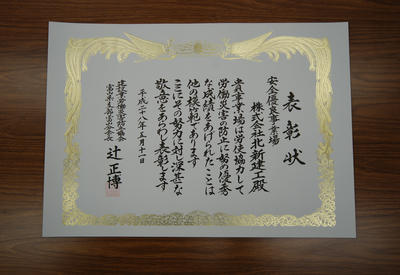 表彰状
安全優良事業場
株式会社北新建工殿
貴事業場は労使協力して
労働災害の防止に努め優秀
な成績をあげられたことは
他の模範であります
ここにその努力に対し深甚な
敬意をあらわし表彰します
平成二十八年三月十一日
建設業労働災害防止協会
辻正博